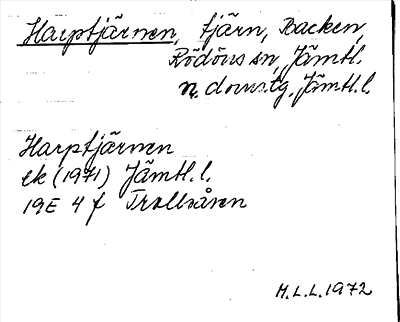 Harptjärnen, tjärn, Backen,
Rödöns sn, Jämtl.
n. doms.tg, Jämtl.l.
Harptjärnen
ek (1971) Jämtl.l.
19E 4 f Trollåsen
M.L.L. 1972